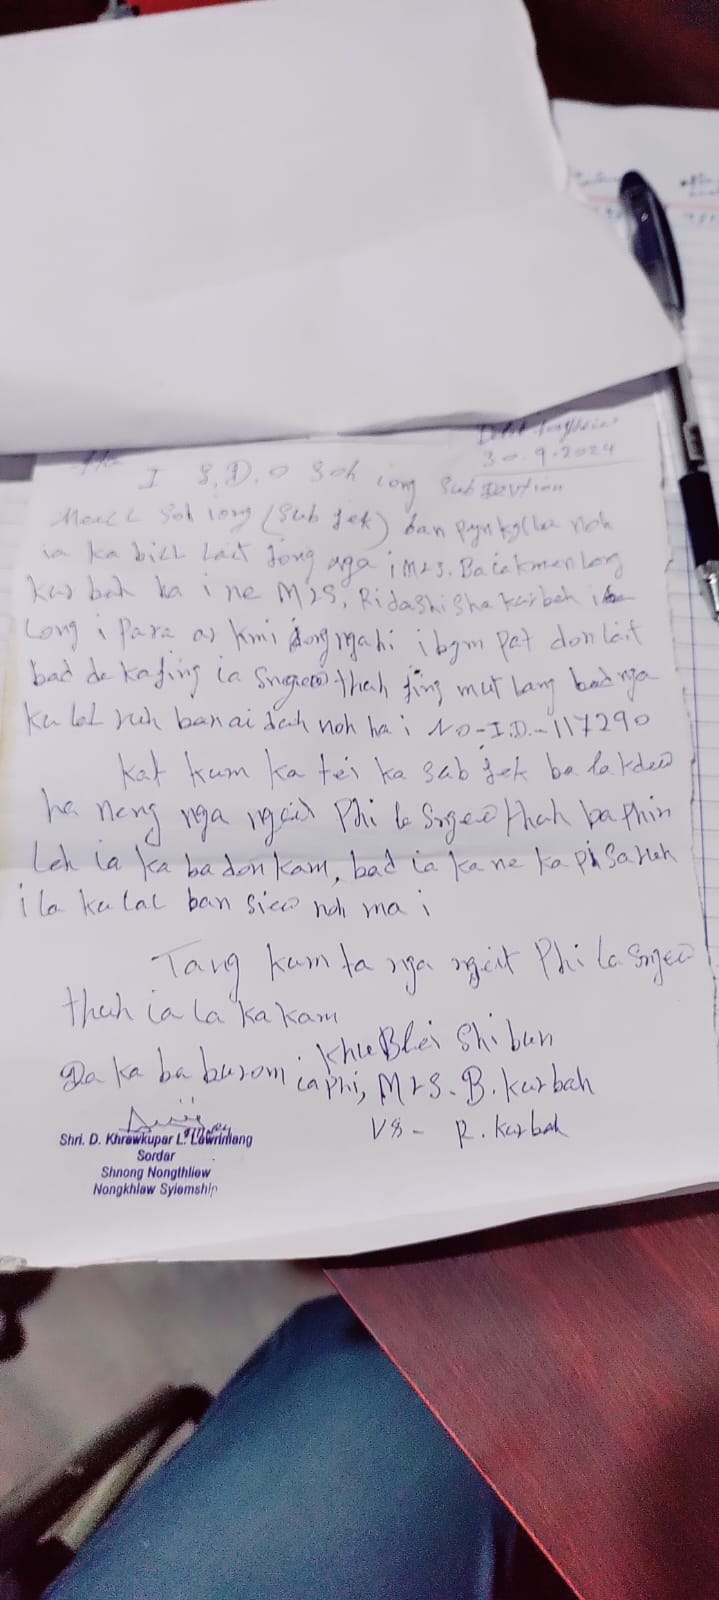 30.9.2024
I S.D.O Soh iong Sub Devtion
Meecl Soh iong (Sub jek) ban pynkylla noh
ia ka bill lait jong nga i Mrs. Baiakmenlang
kur bah ha i ne Mrs. Ridashisha kurbah i
long i para ar kmi jong nga hi i bym pat don lait
bad de ka jing ia sngew thuh jing mut lang bad nga
ka lol ruh ban ai dah noh ha i No-I.D.-117290
Kat kum ka tei ka sub jek ba la kdew
ha neng nga ngeit Phi la Sngew thuh ba phin
leh ia ka ba donkam, bad ia ka ne ka pisa ruh
i la ku lac ban siew noh ma i
Tang kum ta nga ngeit Phi la Sngew
thuh ia la ka kam
Khublei Shibun
Da ka ba burom ia phi, Mrs. B. Kurbah
VS - R. Kurbah
Shri. D. Khrawkupar L. Lawriniang
Sordar
Shnong Nongthliew
Nongkhlaw Syiemship